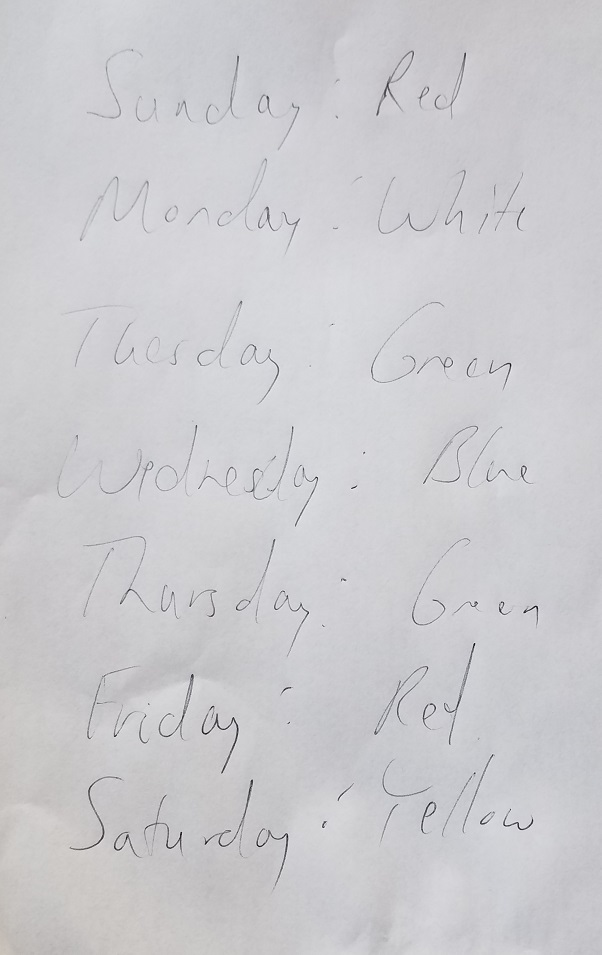 Sunday: Red
Monday: White
Tuesday: Green
Wednesday: Blue
Thursday: Green
Friday: Red
Saturday: Yellow